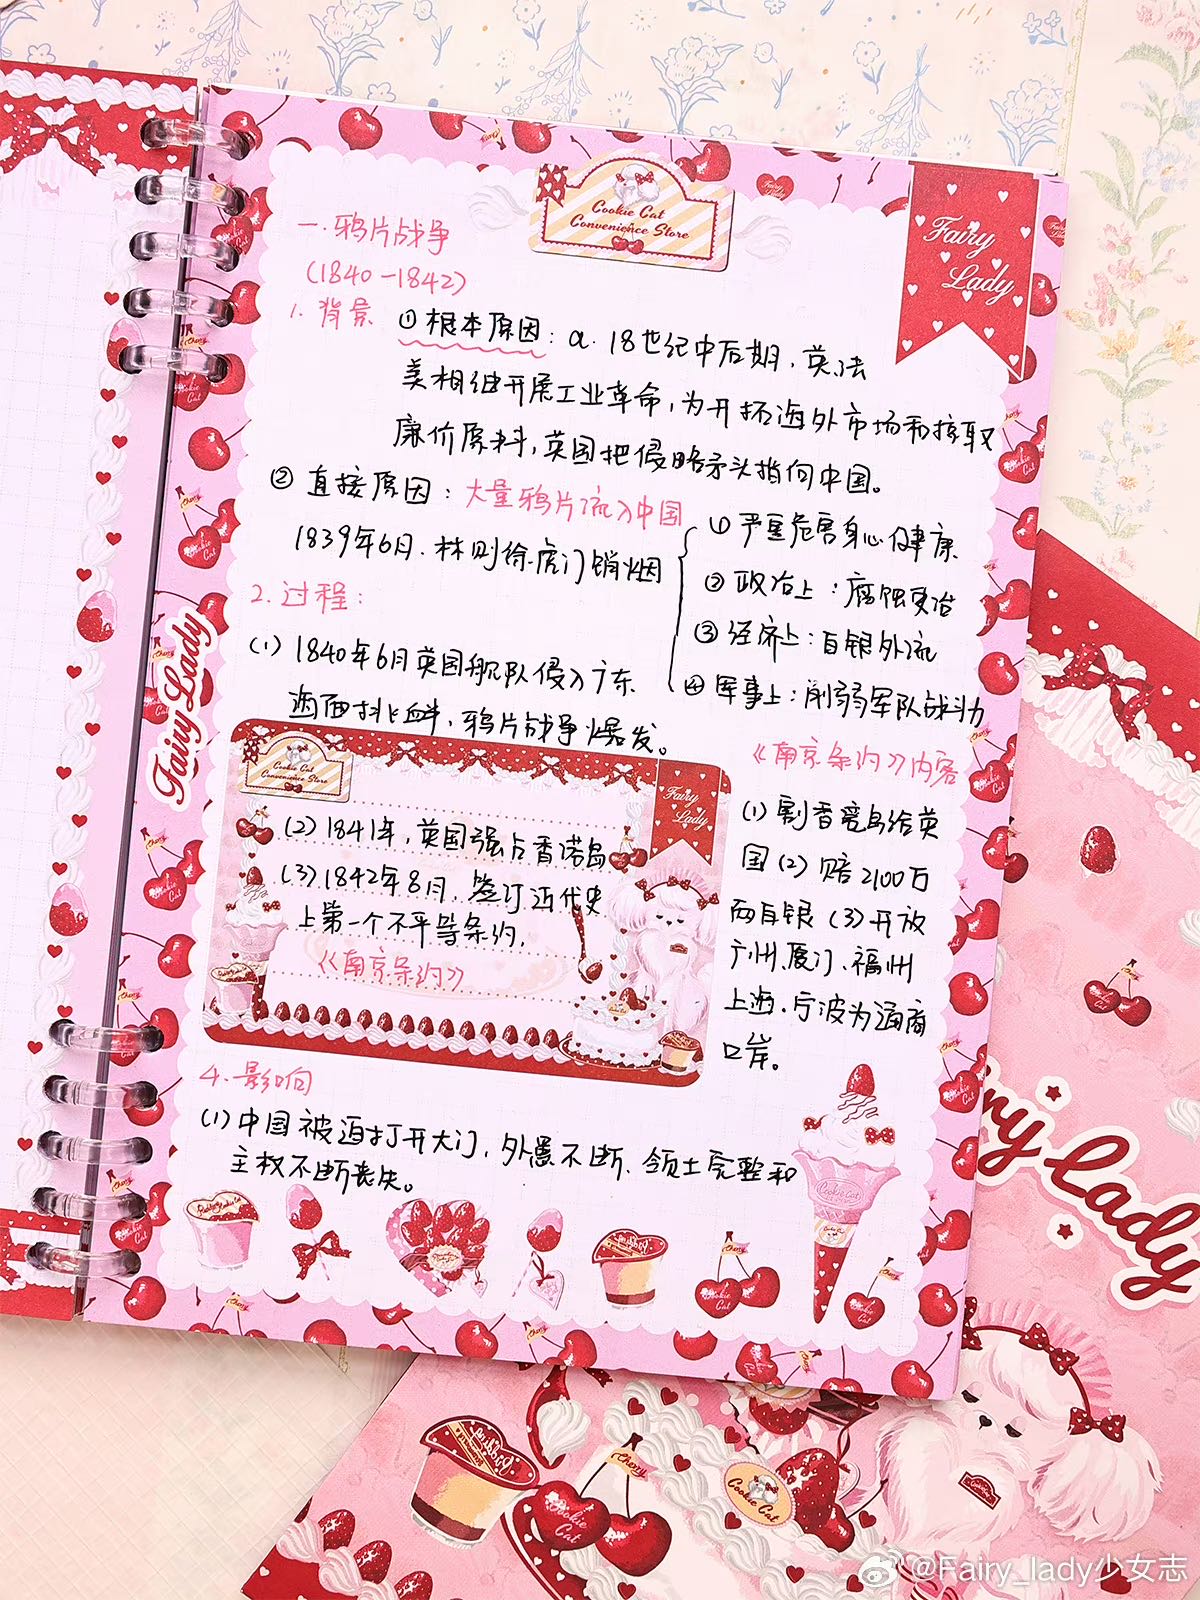 Cookie Cat
Convenience Store
Fairy
Lady
一.鸦片战争
(1840-1842)
1.背景 ①根本原因：a.18世纪中后期，英法
美相继开展工业革命，为开拓海外市场和掠取
廉价原料，英国把侵略矛头指向中国。
②直接原因：大量鸦片流入中国
1839年6月.林则徐虎门销烟
①严重危害身心健康
②政治上：腐蚀吏治
③经济上：白银外流
④军事上：削弱军队战斗力
2.过程：
(1)1840年6月英国舰队侵入广东
海面挑衅，鸦片战争爆发。
Cookie Cat
Convenience Store
Fairy
Lady
(2)1841年，英国强占香港岛
(3)1842年8月，签订近代史
上第一个不平等条约，
《南京条约》
《南京条约》内容
(1)割香港岛给英
国(2)赔2100万
两白银(3)开放
广州、厦门、福州
上海、宁波为通商
口岸。
4.影响
(1)中国被迫打开大门，外患不断、领土完整和
主权不断丧失。
Fairy Lady
Cookie Cat
Pudding
Cherry
Cookie
Cat
Lady
Pudding
Cherry
Cookie
Cat
Cookie Cat
@Fairy_lady少女志